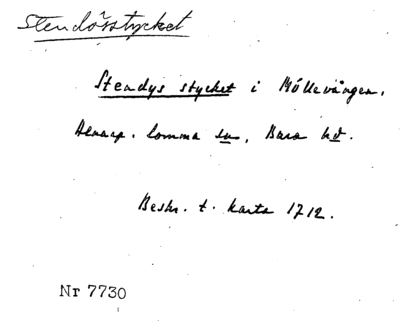 Stendösstycket
Stendys stycket i Möllevången.
Alnarp. Lomma sn, Bara hd.
Beskr. t. karta 1712.
Nr 7730